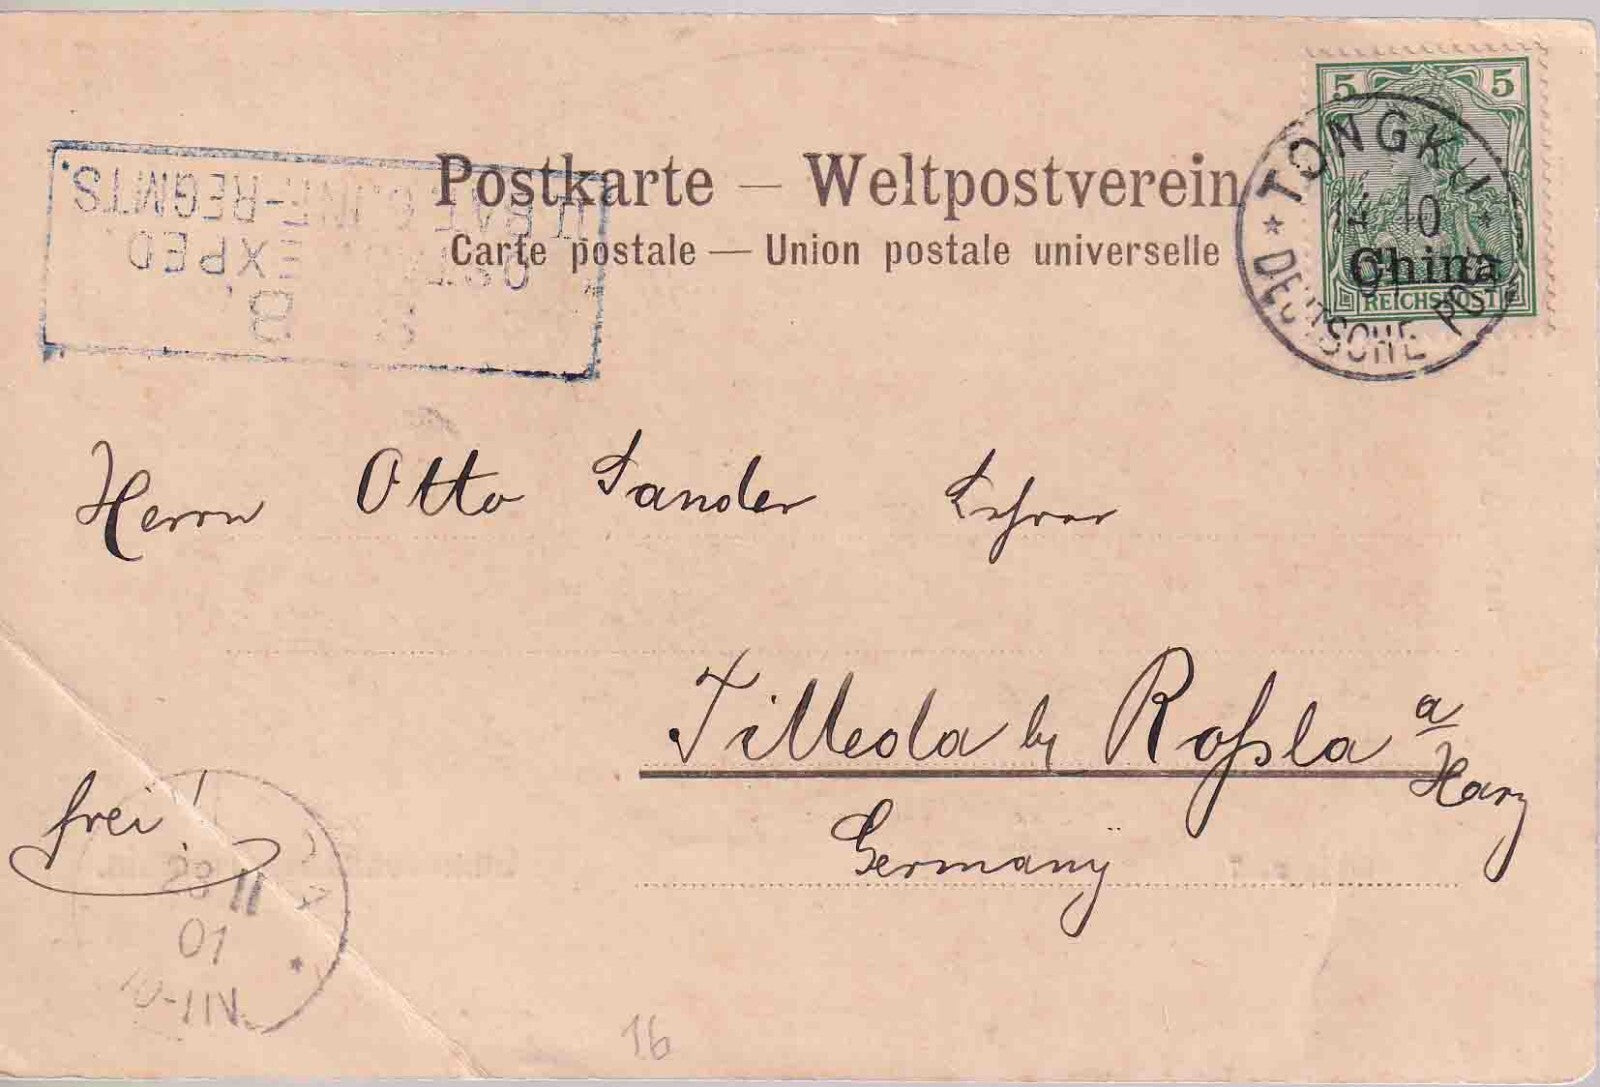 Postkarte – Weltpostverein
Carte postale – Union postale universelle
5 5
TONGKU
14 10
DEUTSCHE POST
China
REICHSPOST
EXPED.
INF.-REGMTS.
Herrn Otto Sander Lehrer
Tilleda by Roßla a/Harz
Germany
frei!
11
01
16